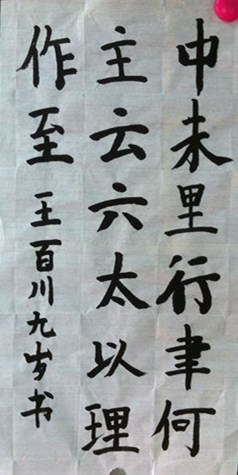 中未里行聿何
主云六太以理
作至 王百川九岁书